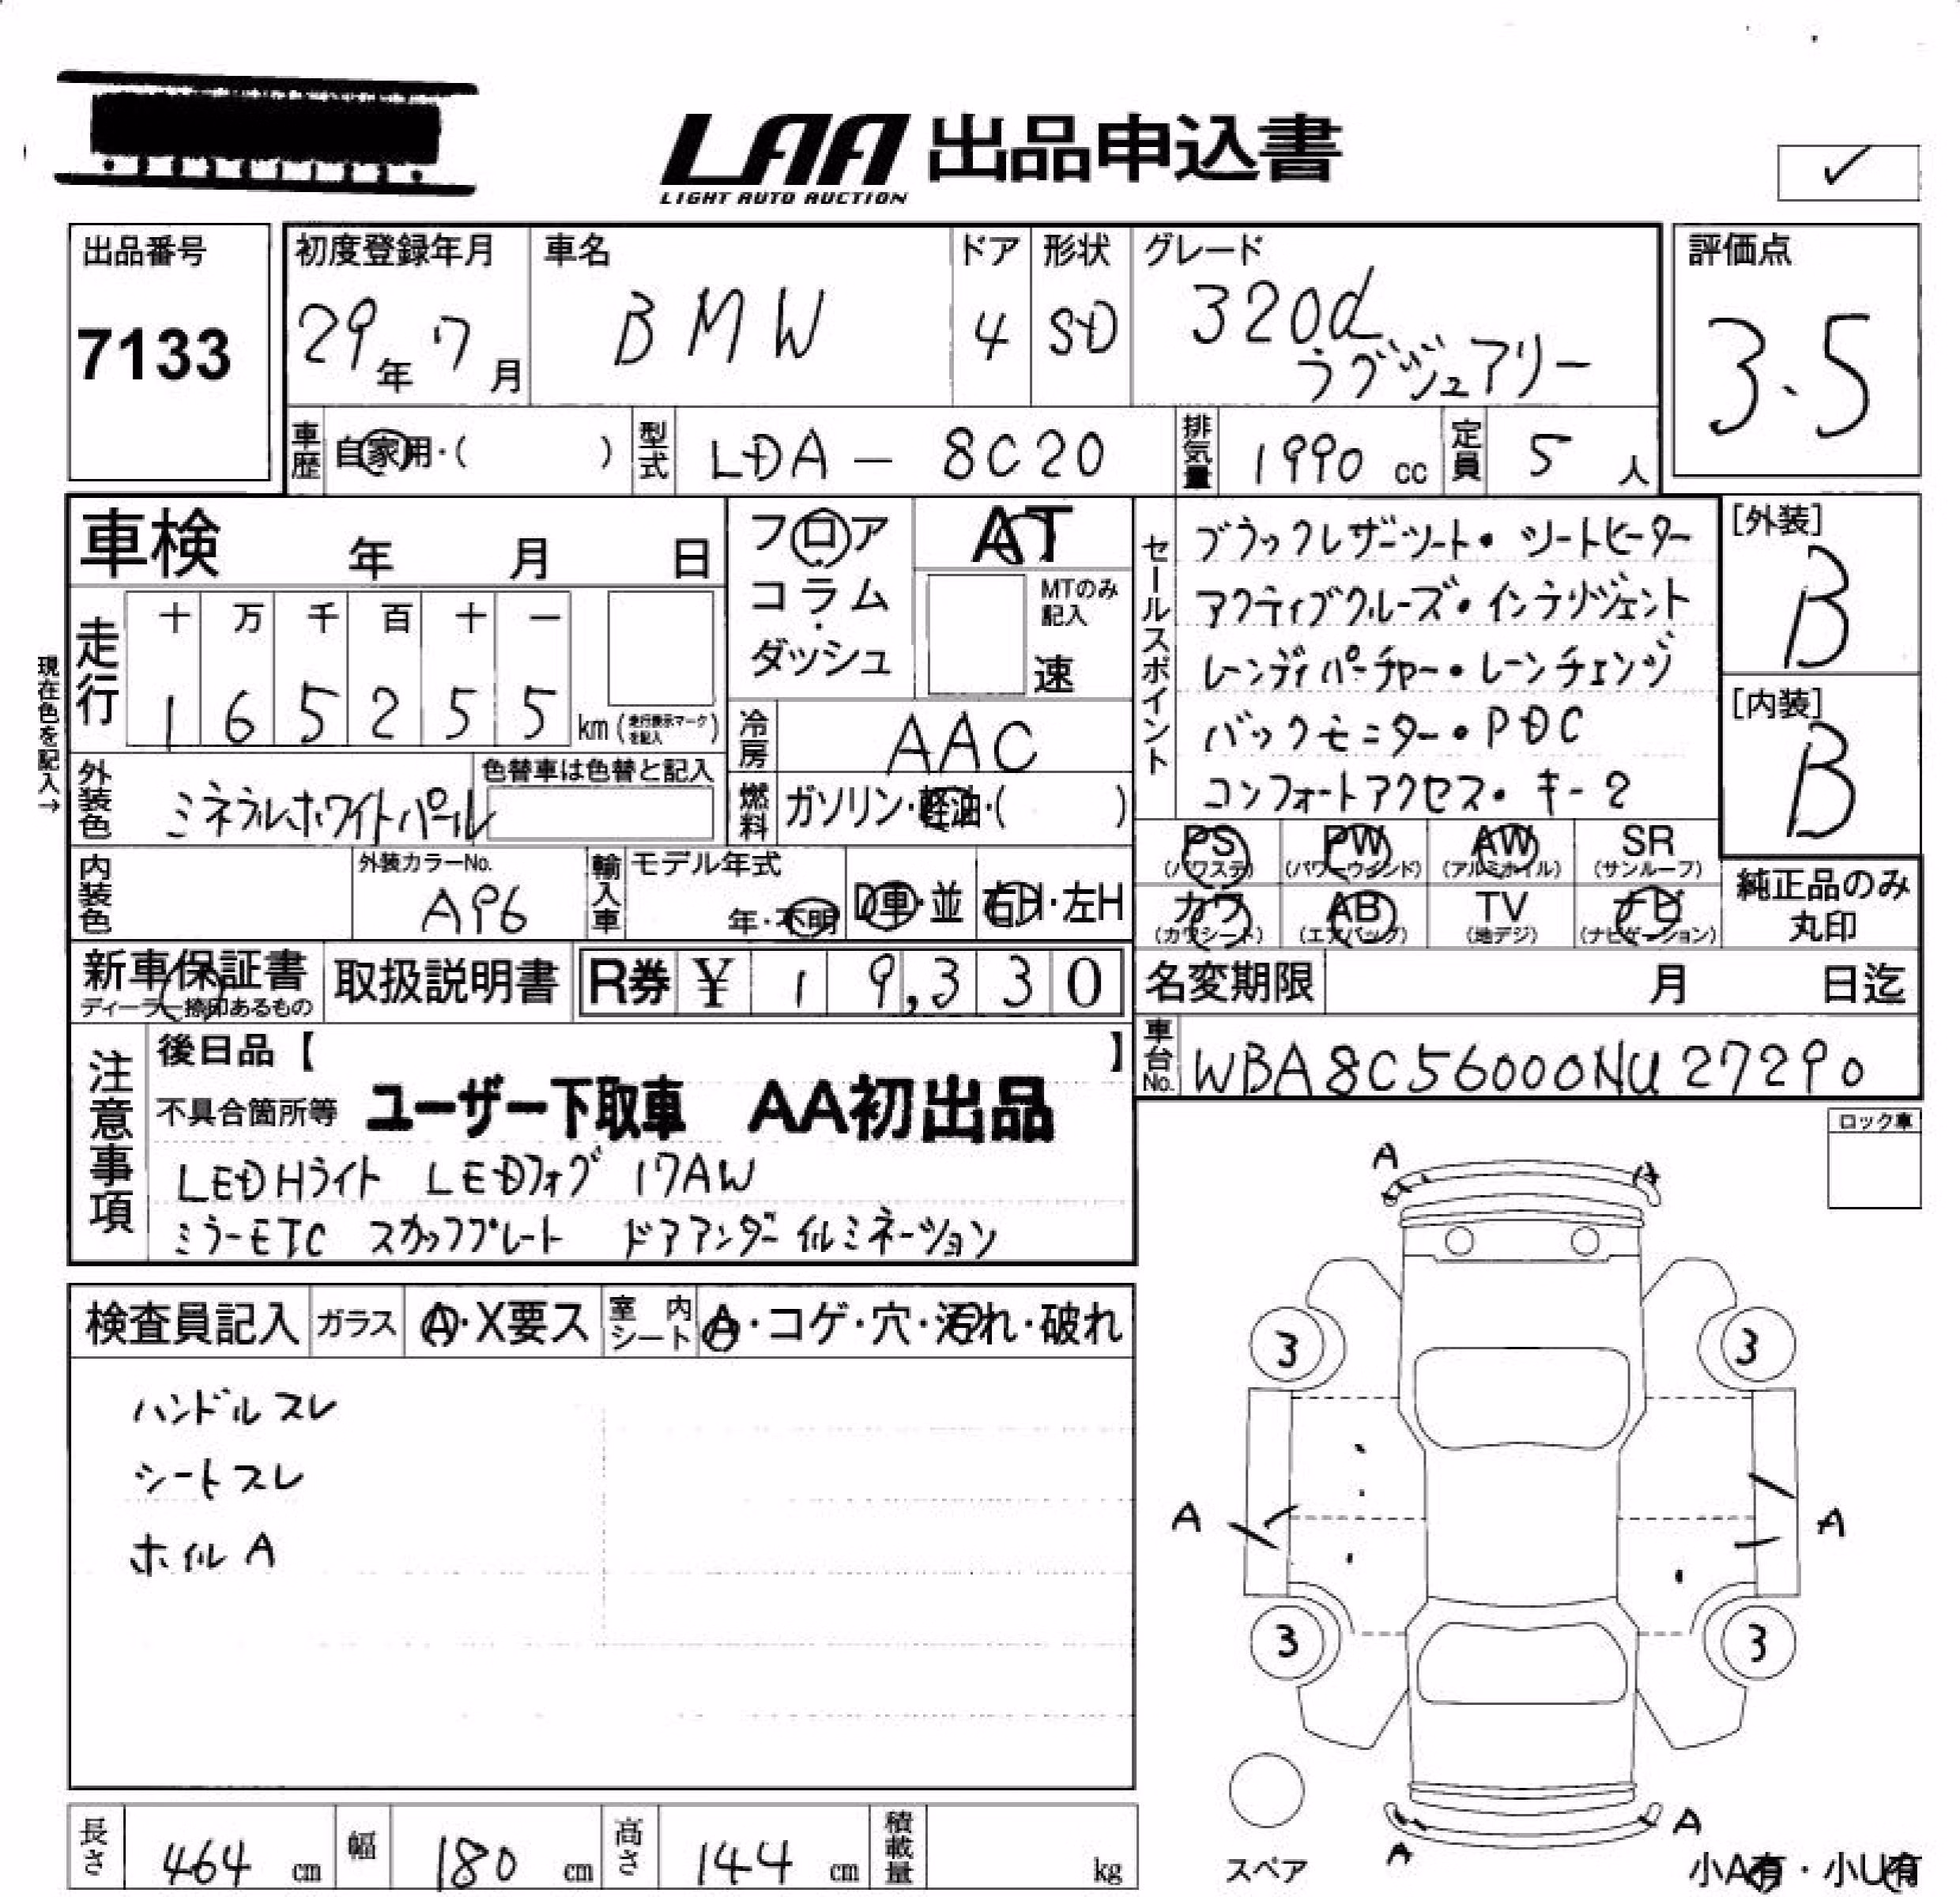 LAA 出品申込書
LIGHT AUTO AUCTION
✓
出品番号
7133
初度登録年月
29年 7月
車名
BMW
ドア
4
形状
SD
グレード
320d
ラグジュアリー
評価点
3.5
車歴 自家用・( )
型式 LDA - 8C20
排気量 1990 cc
定員 5 人
車検 年 月 日
フロア
コラム
ダッシュ
AT
MTのみ記入
速
現在色を記入→
走行
十 万 千 百 十 一
1 6 5 2 5 5 km (走行表示マークを記入)
冷房 AAC
外装色 ミネラルホワイトパール
色替車は色替と記入
燃料 ガソリン・軽油・( )
内装色
外装カラーNo.
A96
輸入車
モデル年式
年・不明
D車・並
右H・左H
セールスポイント
ブラックレザーシート・シートヒーター
アクティブクルーズ・インテリジェント
レーンディパーチャー・レーンチェンジ
バックモニター・PDC
コンフォートアクセス・キー2
PS (パワステ)
PW (パワーウインド)
AW (アルミホイル)
SR (サンルーフ)
カワ (カワシート)
AB (エアバッグ)
TV (地デジ)
ナビ (ナビゲーション)
[外装]
B
[内装]
B
純正品のみ
丸印
新車保証書
ディーラー捺印あるもの
取扱説明書
R券 ¥ 1 9,3 3 0
名変期限 月 日迄
車台No. WBA8C56000NU27290
注意事項
後日品【 】
不具合箇所等 ユーザー下取車 AA初出品
LEDHライト LEDフォグ 17AW
ミラーETC スカッフプレート ドアアンダーイルミネーション
ロック車
検査員記入
ガラス A・X要ス
室内シート A・コゲ・穴・汚れ・破れ
ハンドルスレ
シートスレ
ホイルA
A
3 3
A A
3 3
A
A
スペア
小A有・小U有
長さ 464 cm
幅 180 cm
高さ 144 cm
積載量 kg